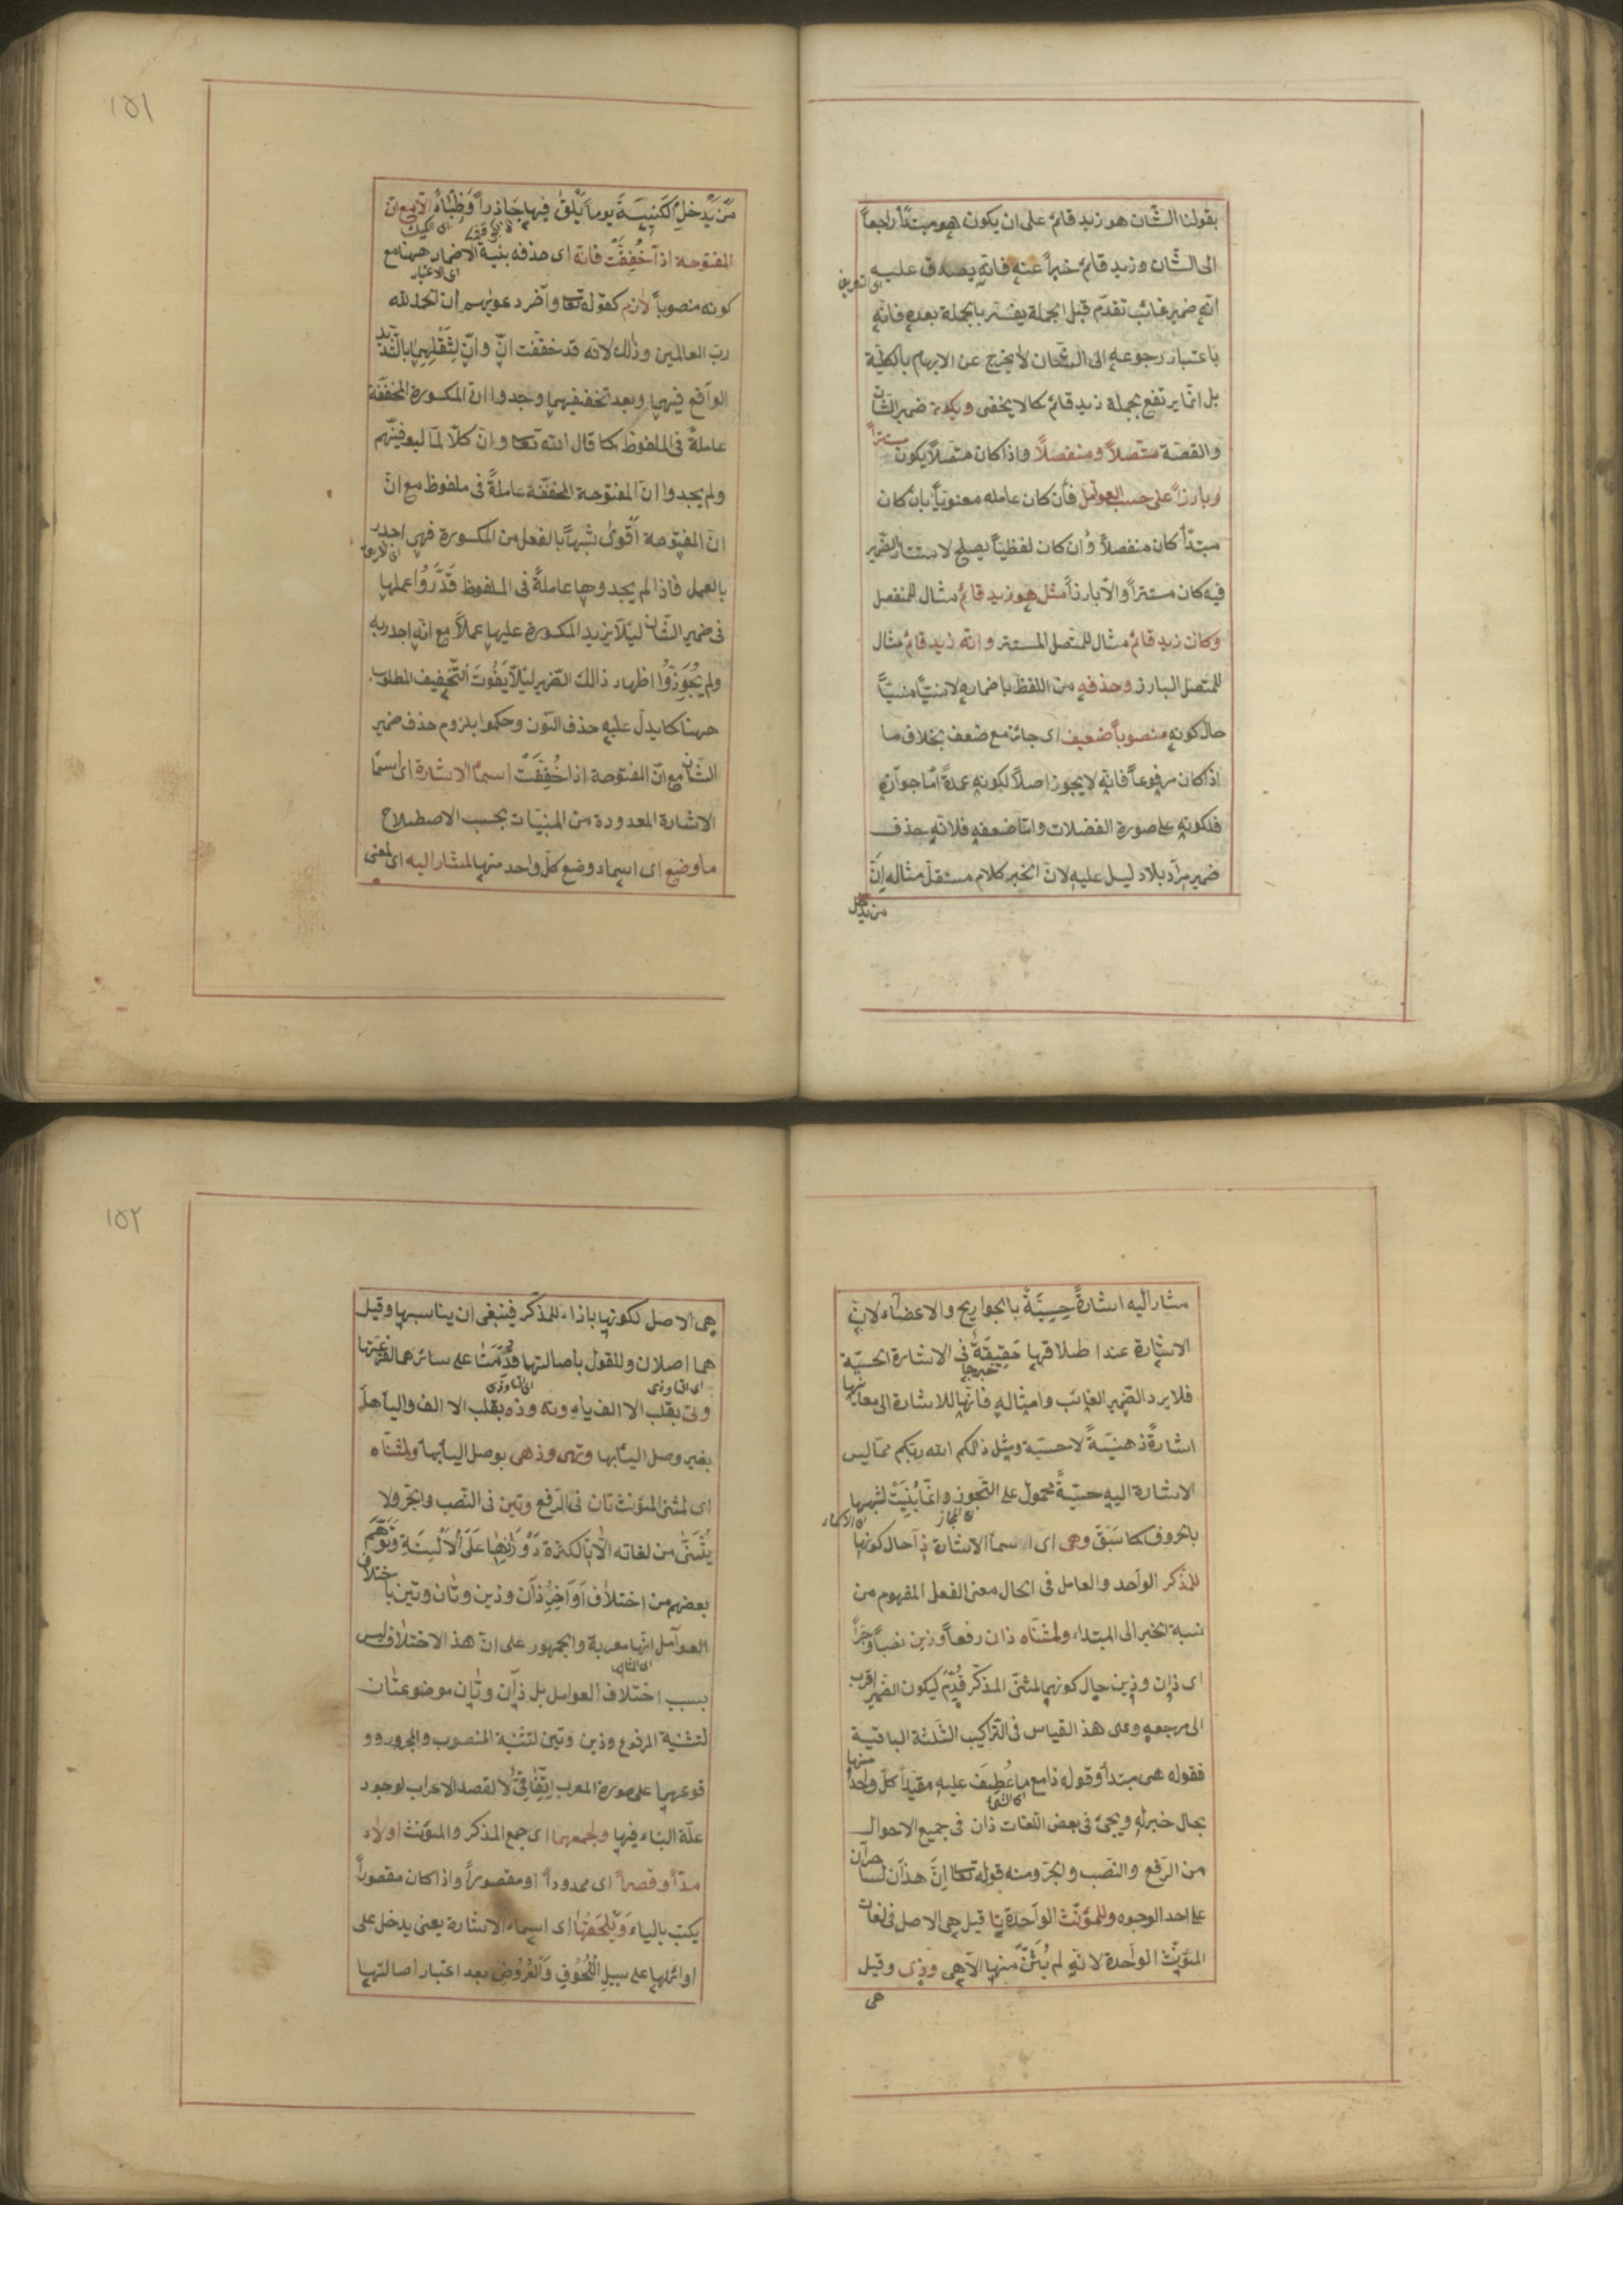 بقولنا الشان هو زيد قائم على ان يكون هو مبتدأ راجعاً
الى الشان وزيد قائم خبراً عنه فانه يصدق عليه
انه ضمير غائب تقدم قبل الجملة يفسر بالجملة بعده فانه
باعتبار رجوعه الى الشان لا يخرج عن الابهام بالكلية
بل انما يرتفع بجملة زيد قائم كما لا يخفى ويكون ضمير الشان
والقصة متصلاً ومنفصلاً واذا كان متصلاً يكون مستتراً
وبارزاً على حسب العوامل فان كان عامله معنوياً بان كان
مبتدأ كان منفصلاً وان كان لفظياً يصلح لاستتار الضمير
فيه كان مستتراً والا بارزاً مثل هو زيد قائم مثال للمنفصل
وكان زيد قائم مثال للمتصل المستتر وانه زيد قائم مثال
للمتصل البارز وحذفه من اللفظ باضماره لا نسيّاً منسيّاً
حال كونه منصوباً ضعيف اى جائز مع ضعف بخلاف ما
اذا كان مرفوعاً فانه لا يجوز اصلاً لكونه عمدة امّا جوازه
فلكونه على صورة الفضلات وامّا ضعفه فلانه حذف
ضمير مراد بلا دليل عليه لان الخبر كلام مستقل مثاله اِنَّ
من يدخل
١٥١
مَن يَدخلِ الكَنِيسَةَ يوماً يَلْقَ فيها جَاذِراً وَظِبَاءً الا مع ان
المفتوحة اذا خُفِفَت فانه اى حذفه بنية الاضمار ههنا مع
كونه منصوباً لازم كقوله تعا وآخر دعويهم ان الحمد لله
ربّ العالمين وذلك لانه قد خففت اِنّ وانّ لِثِقَلِهِما بالتشديد
الواقع فيهما وبعد تخفيفهما وجدوا ان المكسورة المخففة
عاملةً فى الملفوظ كما قال الله تعا وان كلّا لمّا ليوفينّهم
ولم يجدوا انّ المفتوحة المخففة عاملةً فى ملفوظ مع انّ
انّ المفتوحة أقوى شبهاً بالفعل من المكسورة فهى اجدر
بالعمل فاذا لم يجدوها عاملةً فى الملفوظ قَدَّرُوا عملها
فى ضمير الشان لئلا يزيد المكسورة عليها عملاً مع انه اجدر به
ولم يُجَوِّزُوا اظهار ذالك الضمير لئلا يَفُوتَ التخفيف المطلوب
ههنا كما يدل عليه حذف النون وحكموا بلزوم حذف ضمير
الشان مع انّ المفتوحة اذا خُفِّفَتْ اسمآ الاشارة اى اسمآ
الاشارة المعدودة من المبنيات بحسب الاصطلاح
ما وضع اى اسماء وضع كلّ واحد منها لمشار اليه اى لمعنى
مشار اليه اشارةً حِسِيَّةً بالجوارح والاعضاء لان
الاشارة عند اطلاقها حَقِيقَةٌ فى الاشارة الحسيّة
فلا يرد الضمير الغائب وامثاله فانها للاشارة الى معانيها
اشارةً ذهنيّةً لا حسيّة ومثل ذالكم الله ربّكم مما ليس
الاشارة اليه حسيّةً محمول على التجوز وانما بُنِيَتْ لشبهها
بالحروف كما سَبَقَ وهى اى اسمآ الاشارة ذا حال كونها
للمذكر الواحد والعامل فى الحال معنى الفعل المفهوم من
نسبة الخبر الى المبتداء ولمثناه ذان رفعاً وذين نصباً وجراً
اى ذان وذين حال كونهما لمثنى المذكر قُدِّمَ ليكون الضمير اقرب
الى مرجعه وعلى هذ القياس فى التراكيب الثلثة الباقية
فقوله هى مبتدأ وقوله ذا مع ما عُطِفَ عليه مقيداً كلّ واحد منها
بحال خبر له ويجئ فى بعض اللغات ذان فى جميع الاحوال
من الرفع والنصب والجر ومنه قوله تعا اِنَّ هذان لساحران
على احد الوجوه وللمؤنث الواحدة تا قيل هى الاصل فى لغات
المؤنث الواحدة لانه لم يُثَنَّ منها الا هى وذى وقيل
هى
١٥٢
هى الاصل لكونها بازاء للمذكر فينبغى ان يناسبها وقيل
هما اصلان وللقول باصالتها قُدِّمَتا على سائرهما لفرعيتها
وتى بقلب الالف ياء وته وذه بقلب الالف واليآ هاءً
بغير وصل اليآ بها وتهى وذهى بوصل اليآ بها ولمثناه
اى لمثنى المؤنث تان فى الرفع وتين فى النصب والجر ولا
يُثَنّى من لغاته الا تا لكثرة دَوَرَانِها عَلَى الْاَلْسِنَةِ وَتَوَهَّمَ
بعضهم من اختلاف اَوَاخِرِ ذان وذين وتان وتين باختلاف
العوامل انها معربة والجمهور على ان هذ الاختلاف ليس
بسبب اختلاف العوامل بل ذان وتان موضوعتان
لتثنية المرفوع وذين وتين لتثنية المنصوب والمجرور وو
قوعهما على صورة المعرب اِتِّفَاقِىٌّ لا لقصد الاعراب لوجود
علّة البناء فيها ولجمعهما اى جمع المذكر والمؤنث اولاء
مدّاً وقصراً اى ممدوداً او مقصوراً واذا كان مقصوراً
يكتب بالياء وَيَلْحَقُهَا اى اسماء الاشارة يعنى يدخل على
اوائلها على سبيلِ اللُّحُوقِ وَالعُرُوضِ بعد اعتبار اصالتها